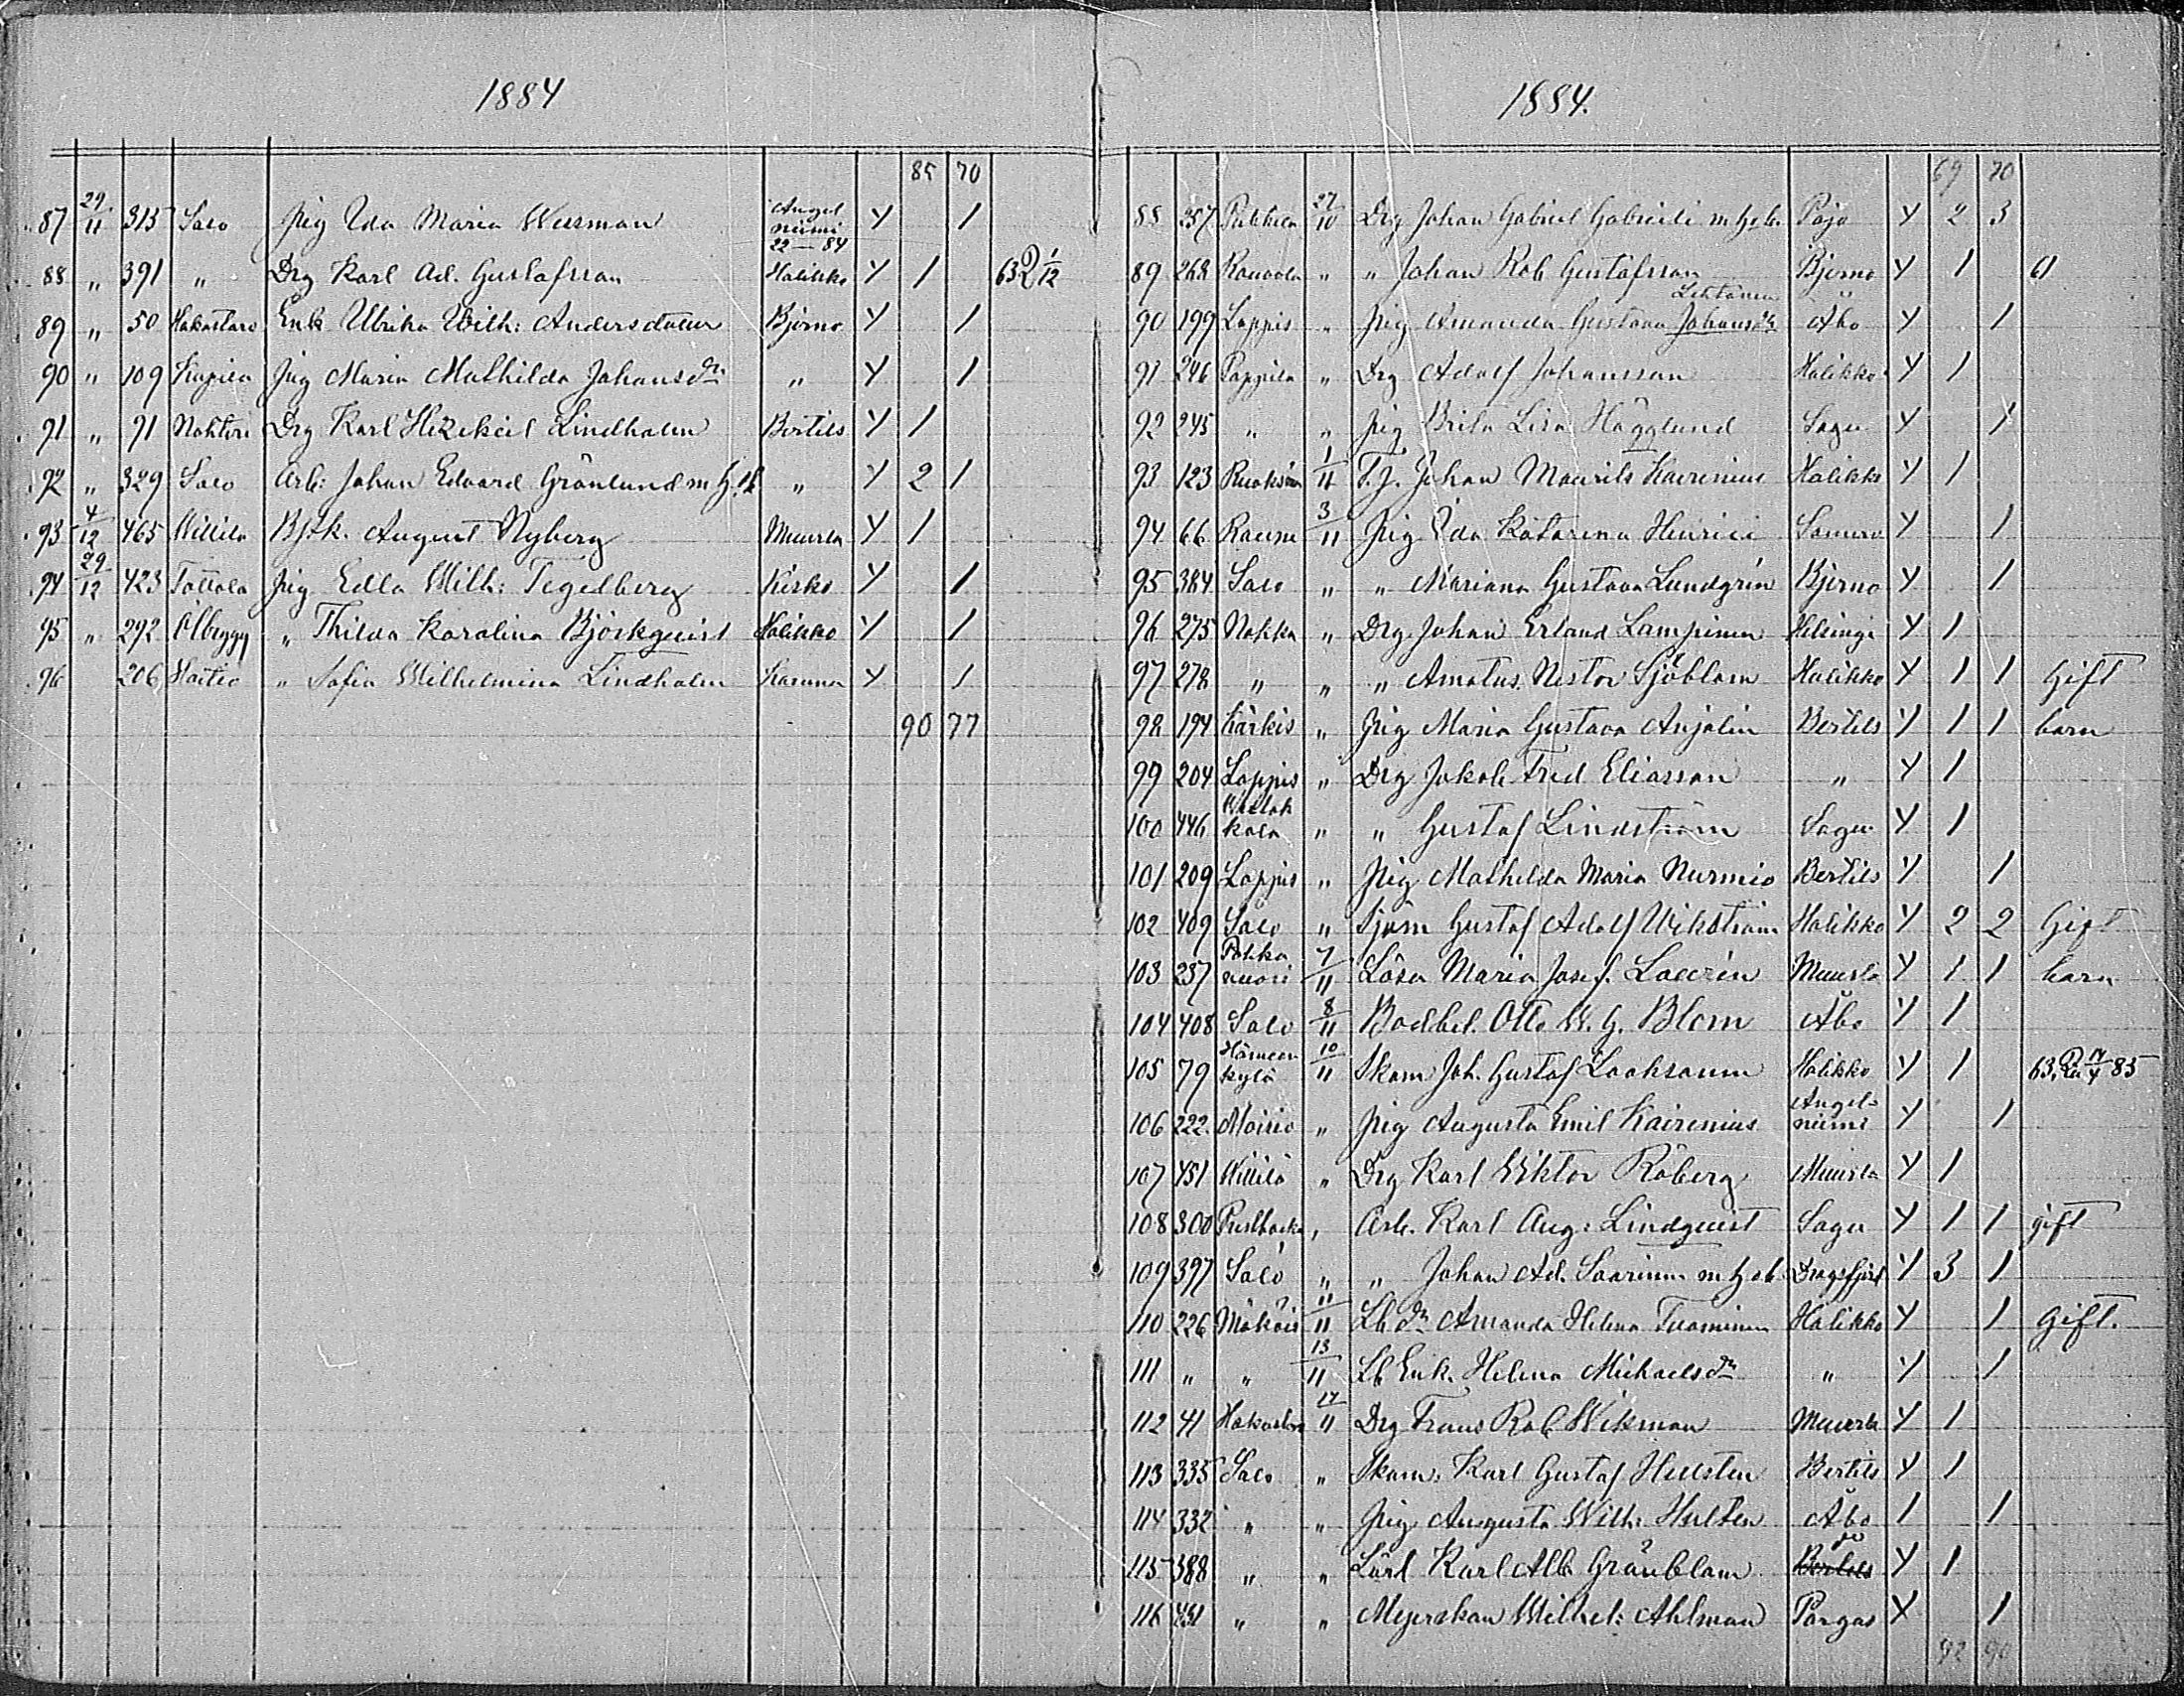 1884
85 70
87 29/11 313 Salo Pig Ida Maria Wessman Angelniemi 22–84 Y 1
88 " 391 " Drg Karl Ad. Gustafsson Halikko Y 1 63 1/12
89 " 50 Hakastaro Enk Ulrika Wilh: Andersdotter Bjerno Y 1
90 " 109 Kapila Pig Maria Mathilda Johansdr " Y 1
91 " 91 Nohteri Drg Karl Hezekiel Lindholm Bertils Y 1
92 " 329 Salo Arb: Johan Edvard Grönlund m h o b " Y 2 1
93 4/12 465 Willilä Bjsk. August Nyberg Muurla Y 1
94 29/12 423 Tottola Pig Edla Wilh: Tegelberg Kisko Y 1
95 " 292 Ölbrygg " Thilda Karolina Björkquist Halikko Y 1
96 206 " Sofia Wilhelmina Lindholm Karuna Y 1
90 77
1884.
69 70
88 357 27/10 Drg Johan Gabriel Gabrieli m h o b. Pojo Y 2 3
89 268 " " Johan Rob Gustafsson Bjerno Y 1 61
Lehtänen
90 199 Lappis " Pig Amanda Gustava Johansdr Åbo Y 1
91 246 Pappila " Drg Adolf Johansson Halikko Y 1
92 245 " " Pig Brita Lisa Hägglund Sagu Y 1
93 123 1/11 T.J. Johan Maurits Kairenius Halikko Y 1
94 66 3/11 Pig Ida Katarina Henrici Somero Y 1
95 384 Salo " " Mariana Gustava Lundgrén Bjerno Y 1
96 275 Nokka " Drg Johan Erland Lampinen Helsinge Y 1
97 278 " " " Amatus Nestor Sjöblom Halikko Y 1 1 Gift
98 194 Kärkis " Pig Maria Gustava Anjelin Bertils Y 1 1 barn
99 204 Lappis " Drg Jakob Fred Eliasson " Y 1
100 446 " " Gustaf Lindström Sagu Y 1
101 209 Lappis " Pig Mathilda Maria Nurmio Bertils Y 1
102 409 Salo " Sjöm Gustaf Adolf Wikström Halikko Y 2 2 Gift
103 237 7/11 Lösa Maria Josef. Muurla Y 1 1 barn
104 408 Salo 8/11 Bodbet. Otto W. G. Blom Åbo Y 1
105 79 Hämeenkylä 10/11 Skom Joh. Gustaf Laaksonen Halikko Y 1 63, 85
106 222 Moisio " Pig Augusta Emil Kairenius Angelniemi Y 1
107 451 Willilä " Drg Karl Viktor Råberg Muurla Y 1
108 300 Prestbacka " Arb. Karl Aug: Lindquist Sagu Y 1 1 gift
109 397 Salo " " Johan Ad. Saarinen m h o b Dragsfjärd Y 3 1
110 226 11/11 Lb dr Amanda Helena Tuominen Halikko Y 1 Gift.
111 " " 13/11 Lb Enk. Helena Michaelsdr " Y 1
112 41 17/11 Drg Frans Rob Wikman Muurla Y 1
113 335 Salo " Skom. Karl Gustaf Hellsten Bertils Y 1
114 332 " " Pig Augusta Wilh: Hulten Åbo 1 1
115 388 " " Lärl Karl Alb. Granblom Bertils do Y 1
116 451 " " Mejerskan Wilhel: Ahlman Pargas Y 1
92 90